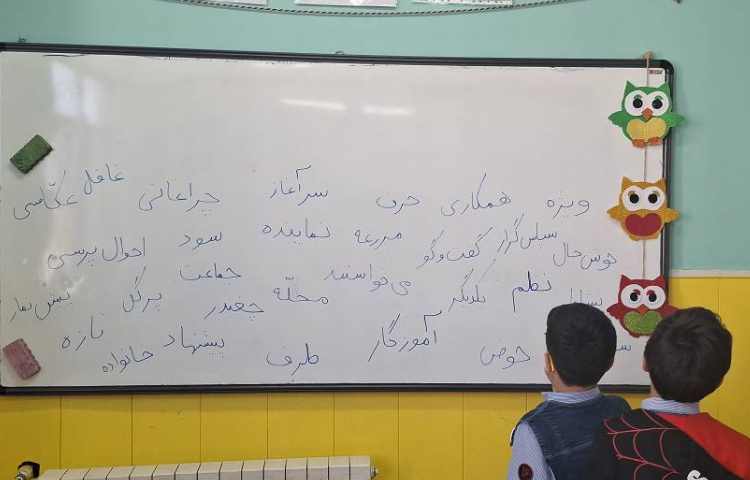 ویژه همکاری حرف سرآغاز چراغانی غافل عکّاسی
خوش حال سپاس گزار گفت‌وگو مزرعه نماینده سود احوال پرسی
نظم یکدیگر می‌خواستند محلّه جماعت چغندر پرگل
حوض آموزگار طرف پیشنهاد خانواده تازه